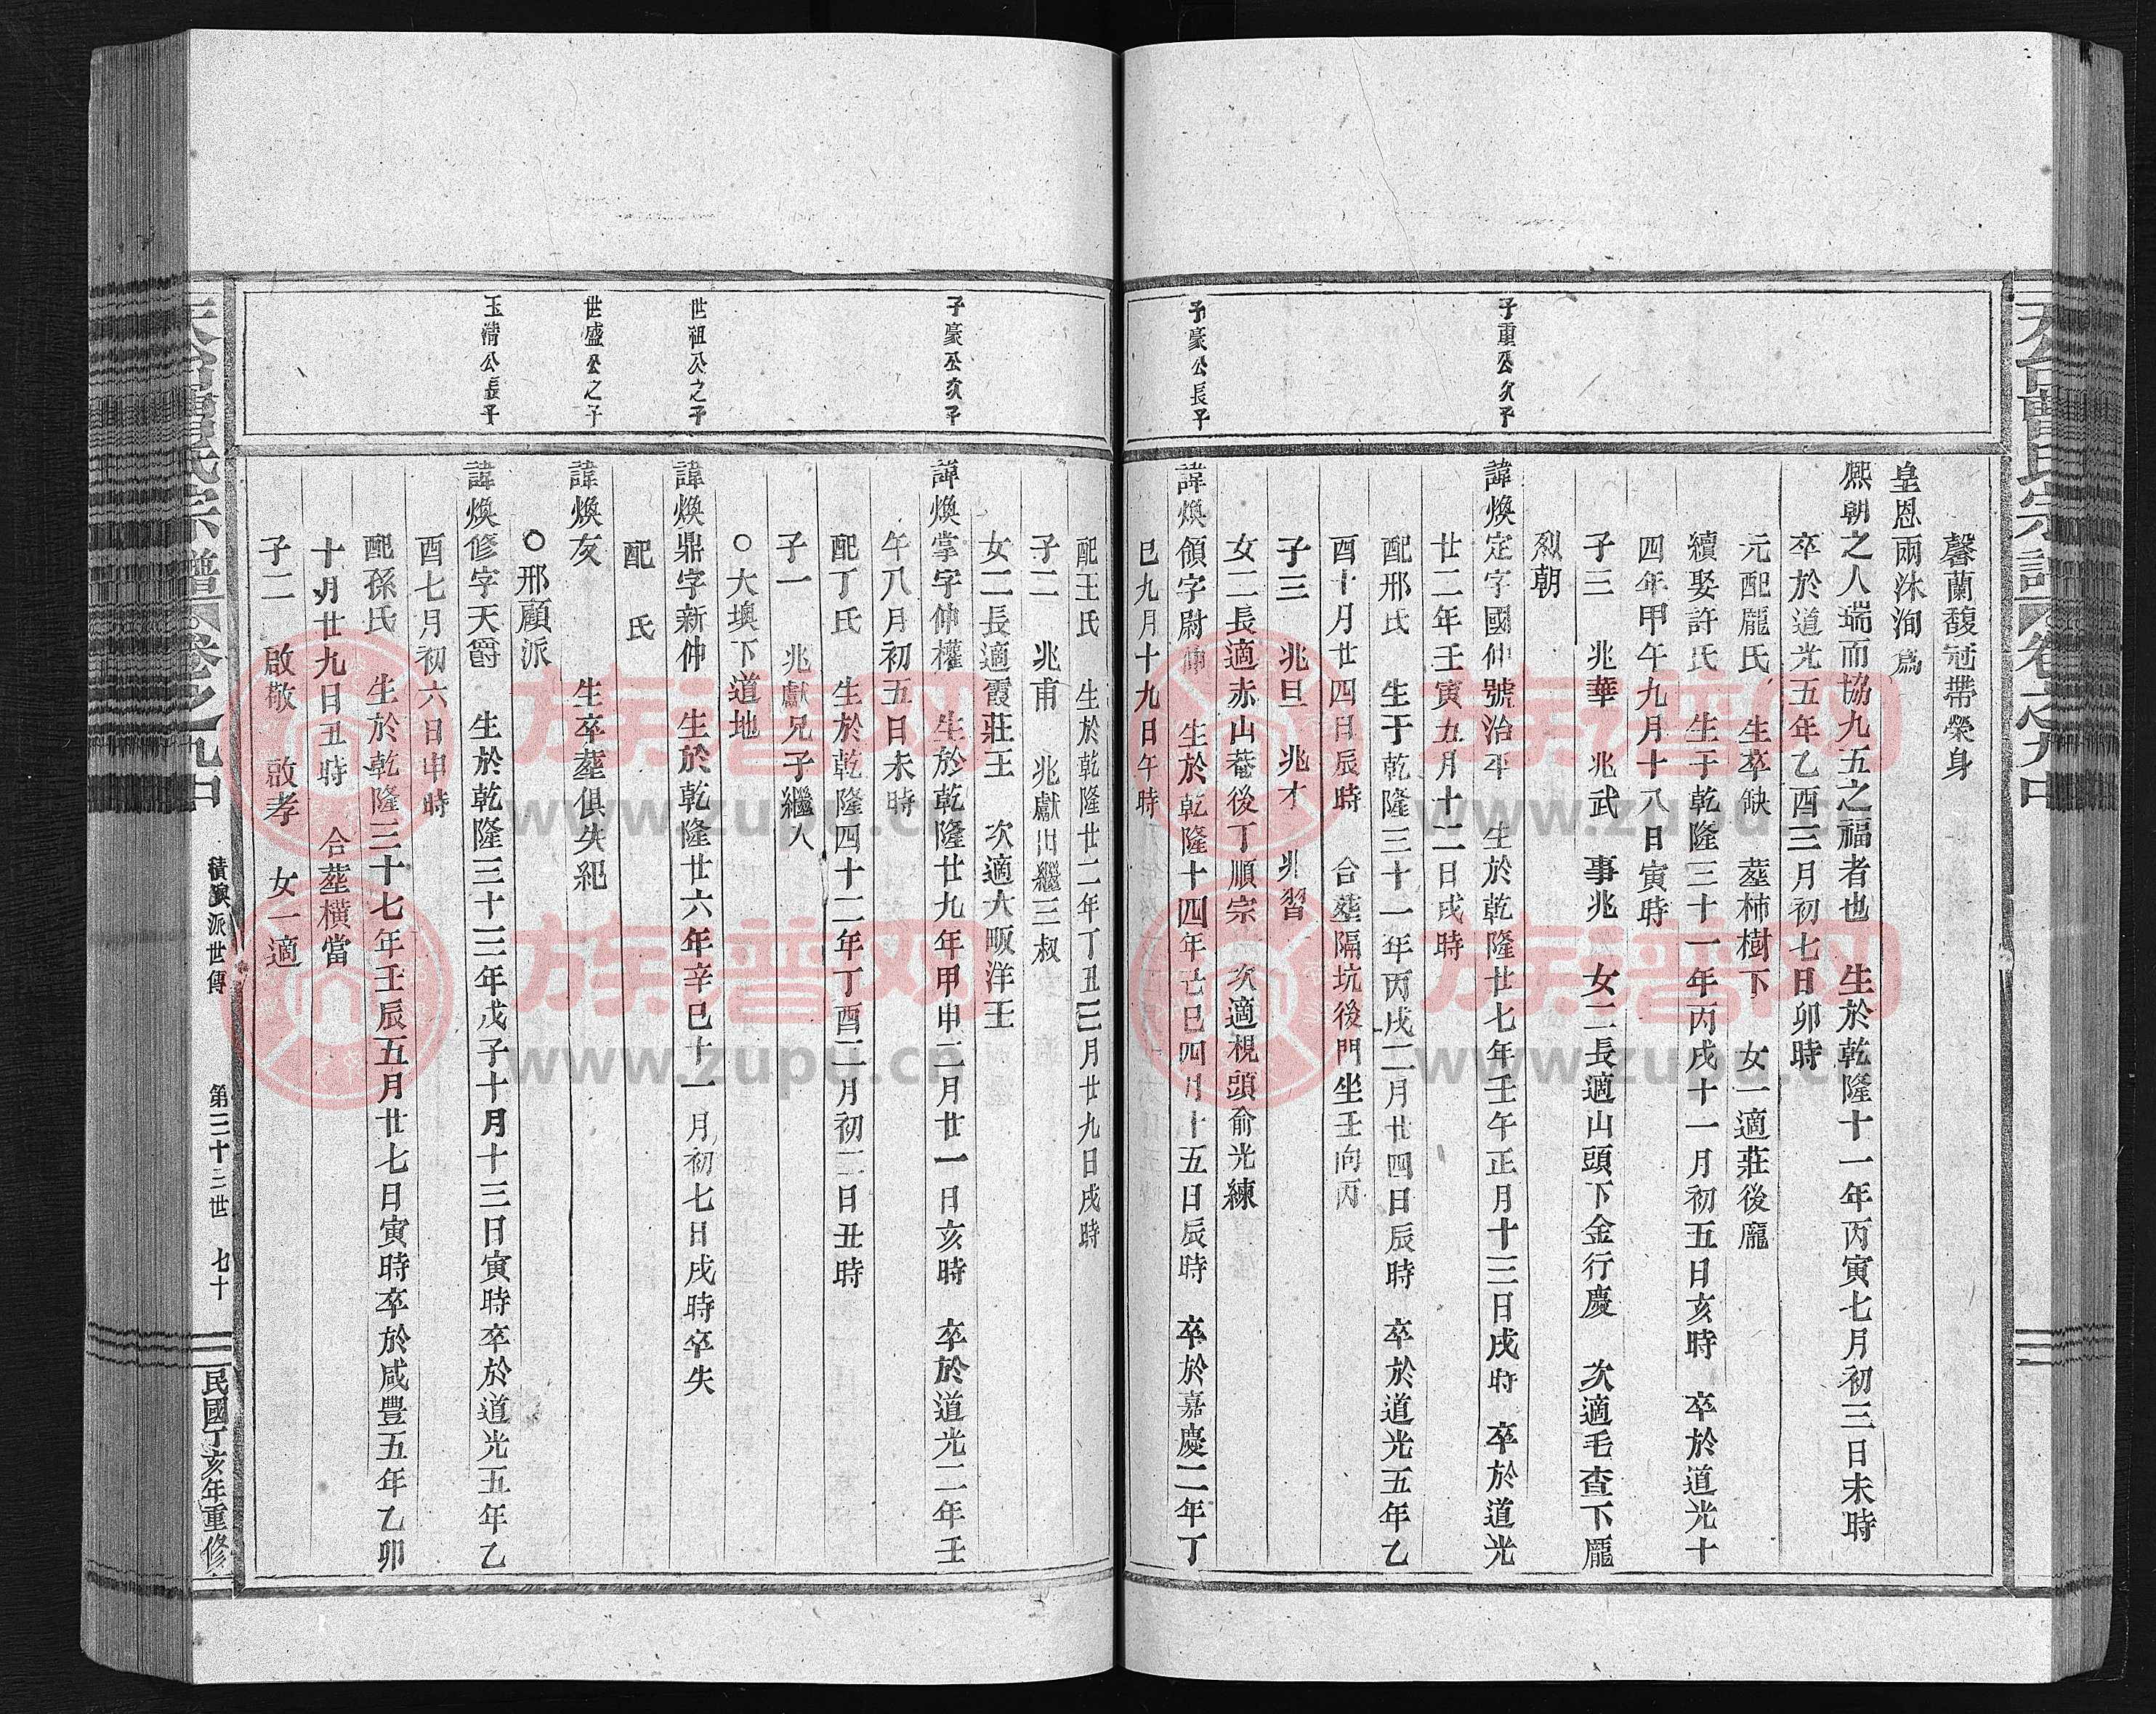 天台曹氏宗譜 卷之九中
馨蘭馥冠帶榮身
皇恩兩沐洵爲
熙朝之人瑞而協九五之福者也 生於乾隆十一年丙寅七月初三日未時
卒於道光五年乙酉三月初七日卯時
元配龐氏 生卒缺 塟柿樹下 女一適莊後龐
續娶許氏 生于乾隆三十一年丙戌十一月初五日亥時 卒於道光十
四年甲午九月十八日寅時
子三 兆華 兆武 事兆 女二長適山頭下金行慶 次適毛查下龐
烈朝
子重公次子
諱煥定字國仲號治平 生於乾隆廿七年壬午正月十三日戌時 卒於道光
廿二年壬寅五月十二日戌時
配邢氏 生于乾隆三十一年丙戌二月廿四日辰時 卒於道光五年乙
酉十月廿四日辰時 合塟隔坑後門坐壬向丙
子三 兆旦 兆才 兆習
女二長適赤山菴後丁順宗 次適枧頭俞光練
子豪公長子
諱煥領字尉仲 生於乾隆十四年己巳四月十五日辰時 卒於嘉慶二年丁
巳九月十九日午時
配王氏 生於乾隆廿二年丁丑三月廿九日戌時
子二 兆甫 兆獻出繼三叔
女二長適霞莊王 次適大畈洋王
子豪公次子
諱煥掌字仲權 生於乾隆廿九年甲申二月廿一日亥時 卒於道光二年壬
午八月初五日未時
配丁氏 生於乾隆四十二年丁酉二月初二日丑時
子一 兆獻兄子繼入
○大墺下道地
世祖公之子
諱煥鼎字新仲 生於乾隆廿六年辛巳十一月初七日戌時卒失
配 氏
世盛公之子
諱煥友 生卒塟俱失紀
○邢顧派
玉清公長子
諱煥修字天爵 生於乾隆三十三年戊子十月十三日寅時卒於道光五年乙
酉七月初六日申時
配孫氏 生於乾隆三十七年壬辰五月廿七日寅時卒於咸豐五年乙卯
十月廿九日丑時 合塟橫當
子二 啟敬 啟孝 女一適
天台曹氏宗譜 卷之九中 積 派世傳 第三十三世 七十 民國丁亥年重修
族谱网
www.zupu.cn
族谱网
www.zupu.cn
族谱网
www.zupu.cn
族谱网
www.zupu.cn